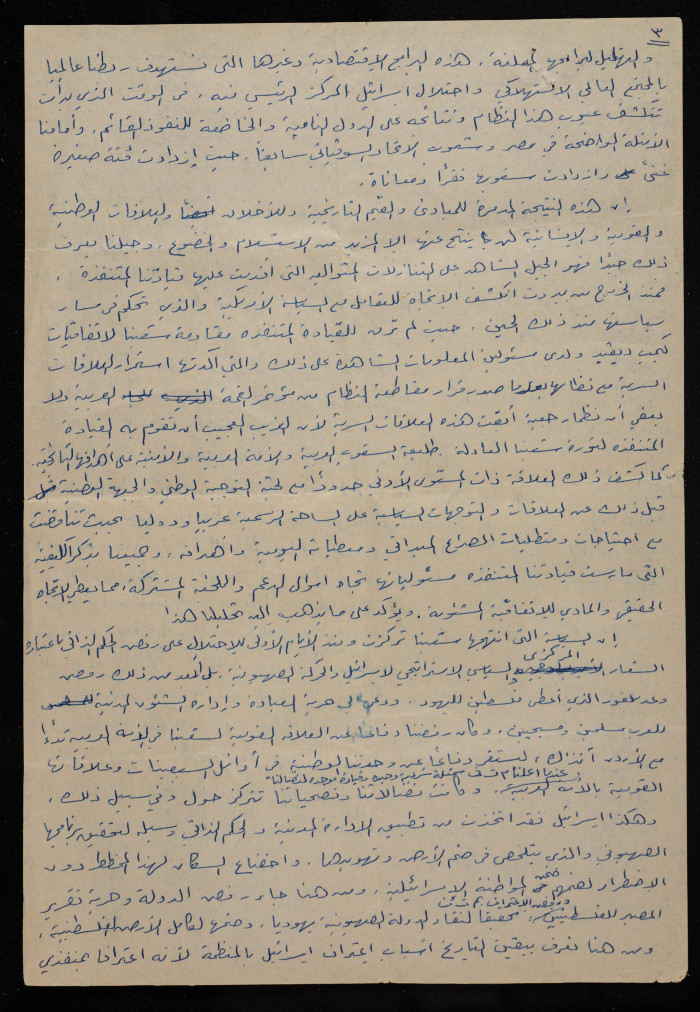 ٣
والتهليل لبرامجها المعلنة. هذه البرامج الاقتصادية وغيرها التي تستهدف ربطنا عالميا
بالمجتمع العالمي الاستهلاكي واحتلال اسرائيل المركز الرئيسي فيه. في الوقت الذي بدأت
تتكشف عيوب هذا النظام ونتائجه على الدول النامية والخاضعة للنفوذ القائم. وأمامنا
الأمثلة الواضحة في مصر وشعوب الاتحاد السوفياتي سابقاً. حيث ازدادت فئة صغيرة
غنىً وازدادت شعوبها فقراً ومعاناة.
إن هذه النتيجة المدمرة للمبادئ والقيم التاريخية وللأخلاق والعلاقات الوطنية
والقومية والإنسانية لن ينتج عنها إلا المزيد من الاستسلام والخضوع. وجيلنا يعرف
ذلك جيداً فهو الجيل الشاهد على التنازلات المتوالية التي أقدمت عليها قيادتنا المتنفذة.
فمنذ الخروج من بيروت انكشف الاتجاه للتعامل مع السياسة الأمريكية والذي تحكم في مسار
سياستها منذ ذلك الحين. حيث لم ترق للقيادة المتنفذه مقاومة شعبنا لاتفاقيات
كمب ديفيد ولدى مسئولين المعلومات الشاهدة على ذلك والتي أكدتها استمرار العلاقات
السرية مع نظامها بعدما صدر قرار مقاطعة النظام من مؤتمر القمة العربية ولا
يعني أن نظماً رجعية أبقت هذه العلاقات السرية لأن الغريب العجيب أن تقوم به القيادة
المتنفذه لثورة شعبنا العادلة. طليعة الشعوب العربية والأمة العربية والأمينة على أهدافها التاريخية.
كما كشف ذلك العلاقة ذات المستوى الأردني حدوداً مع لجنة التوجيه الوطني والجبهة الوطنية
قبل ذلك عن العلاقات والتوجهات السياسية على الساحة الرسمية عربياً ودولياً بحيث تناقضت
مع احتياجات ومتطلبات الصراع الميداني ومعطياته اليومية وأهدافه. وجميعنا يذكر الكيفية
التي مارست قيادتنا المتنفذه مسئولياتها تجاه اموال الدعم واللجنة المشتركة، مما يعطي الاتجاه
الحقيقي والمادي للاتفاقية المشئومة. ويؤكد على ما يذهب إليه تحليلنا هذا
إن السياسة التي انتهجها شعبنا تركزت ومنذ الأيام الأولى للاحتلال على رفض الحكم الذاتي باعتباره
الشعار المركزي السياسي الاستراتيجي لاسرائيل والحركة الصهيونية. بل أبعد من ذلك رفض
وعد بلفور الذي أعطى فلسطين لليهود. ودعى الى حرية العبادة وإدارة الشئون المدنية
للعرب مسلمين ومسيحيين. وكان رفضنا دفاعاً عن العلاقة القومية لشعبنا في الأمة العربية بدءاً
مع الأردن آنذاك، ليستقر دفاعاً عن وحدتنا الوطنية في أوائل السبعينات وعلاقاتها
القومية بالأمة العربية. عندما أعلنا م.ت.ف ممثلة شرعية وحيدة وقيادة موحده لنضالنا
وكانت نضالاتنا وتضحياتنا تتركز حول وفي سبيل ذلك.
وهكذا اسرائيل فقد اتخذت من تطبيق الادارة المدنية والحكم الذاتي وسيلة لتحقيق برنامجها
الصهيوني والذي يتلخص في ضم الأرض وتهويدها. واخضاع السكان لهذا المخطط دون
الاضطرار لضمهم ضمن المواطنة الاسرائيلية. ومن هنا جاء رفض الدولة وحرية تقرير
المصير للفلسطينيين، ورفض الاعتراف بـ م.ت.ف تحقيقاً لنقاء الدولة الصهيونية يهودياً. وضمها لكامل الأرض الفلسطينية.
ومن هنا نعرف بيقين التاريخ أسباب اعتراف اسرائيل بالمنظمة لأنه اعترافا بمتنفذي